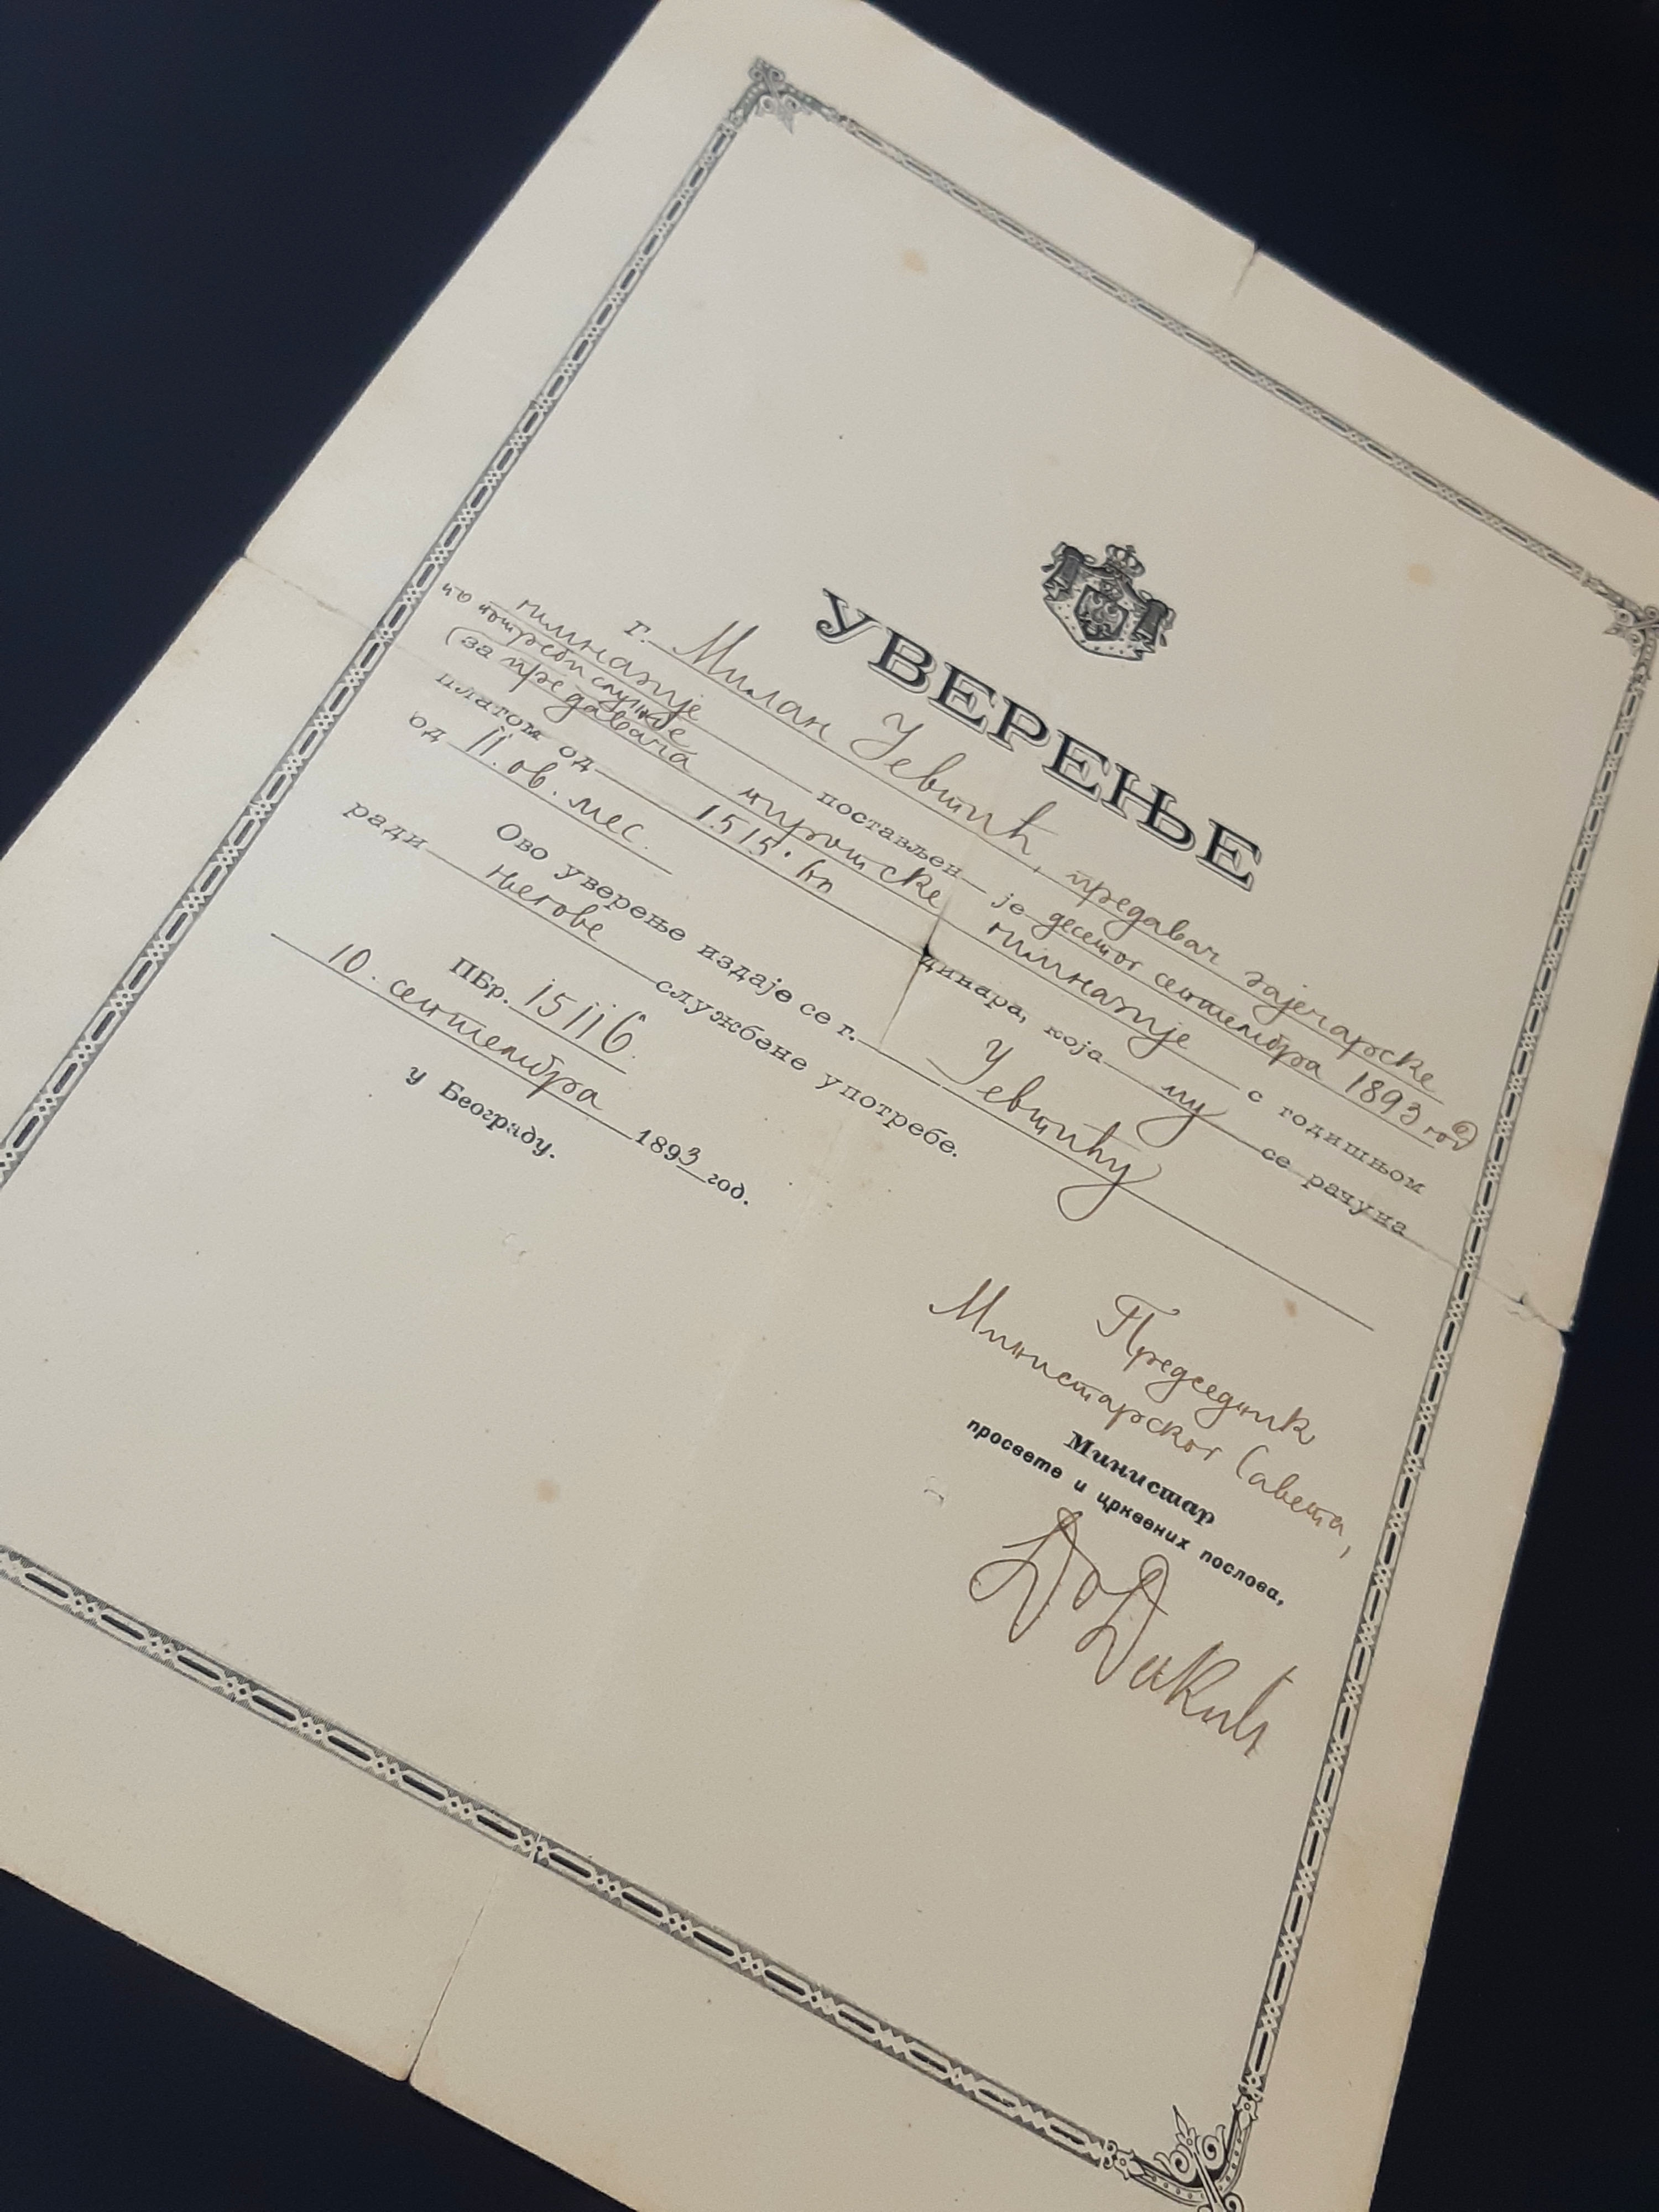 УВЕРЕЊЕ
г. Милан Јевтић, предавач зајечарске
гимназије постављен је десетог септембра 1893 год
по потреби службе
(за предавача пиротске гимназије с годишњом
платом од 1515·кп динара, која му се рачуна
од 11. ов. мес.
Ово уверење издаје се г. Јевтићу
ради његове службене употребе.
ПБр. 15116.
10. септембра 1893 год.
у Београду.
Председник
Министарског Савета,
Министар
просвете и црквених послова,
Докић